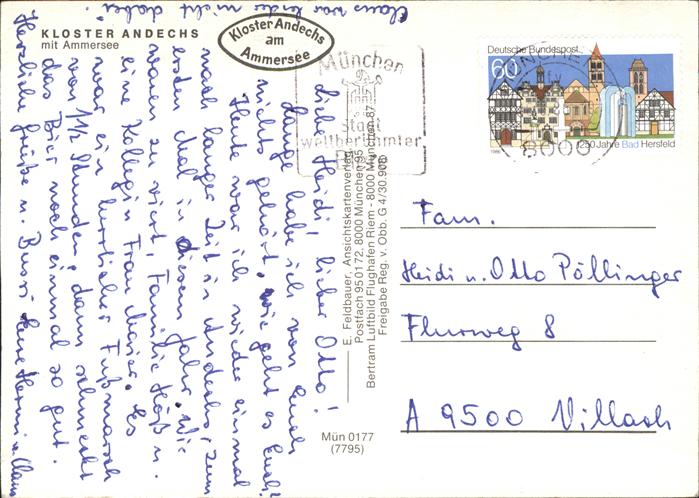 KLOSTER ANDECHS
mit Ammersee
Kloster Andechs
am
Ammersee
München
Stadt
weltberühmter
Deutsche Bundespost
60
1250 Jahre Bad Hersfeld
1986
8000
Liebe Heidi! lieber Otto!
Lange habe ich von Euch
nichts gehört, wie geht es Euch?
Heute war ich wieder einmal
nach langer Zeit in Andechs, zum
ersten Mal in diesem Jahr. Wir
waren zu viert, Familie u.
eine Kollegin Frau Maier. Es
war ein herrlicher Fußmarsch
von 1½ Stunden, dann schmeckt
das Bier noch einmal so gut.
Herzliche Grüße u. Bussi Eure Hermi u. Claus
Claus war leider nicht dabei.
E. Feldbauer, Ansichtskartenverlag
Postfach 95 01 72, 8000 München 95
Bertram Luftbild Flughafen Riem - 8000 München 87
Freigabe Reg. v. Obb. G 4/30.908
Mün 0177
(7795)
Fam.
Heidi u. Otto Pöllinger
Flurweg 8
A 9500 Villach